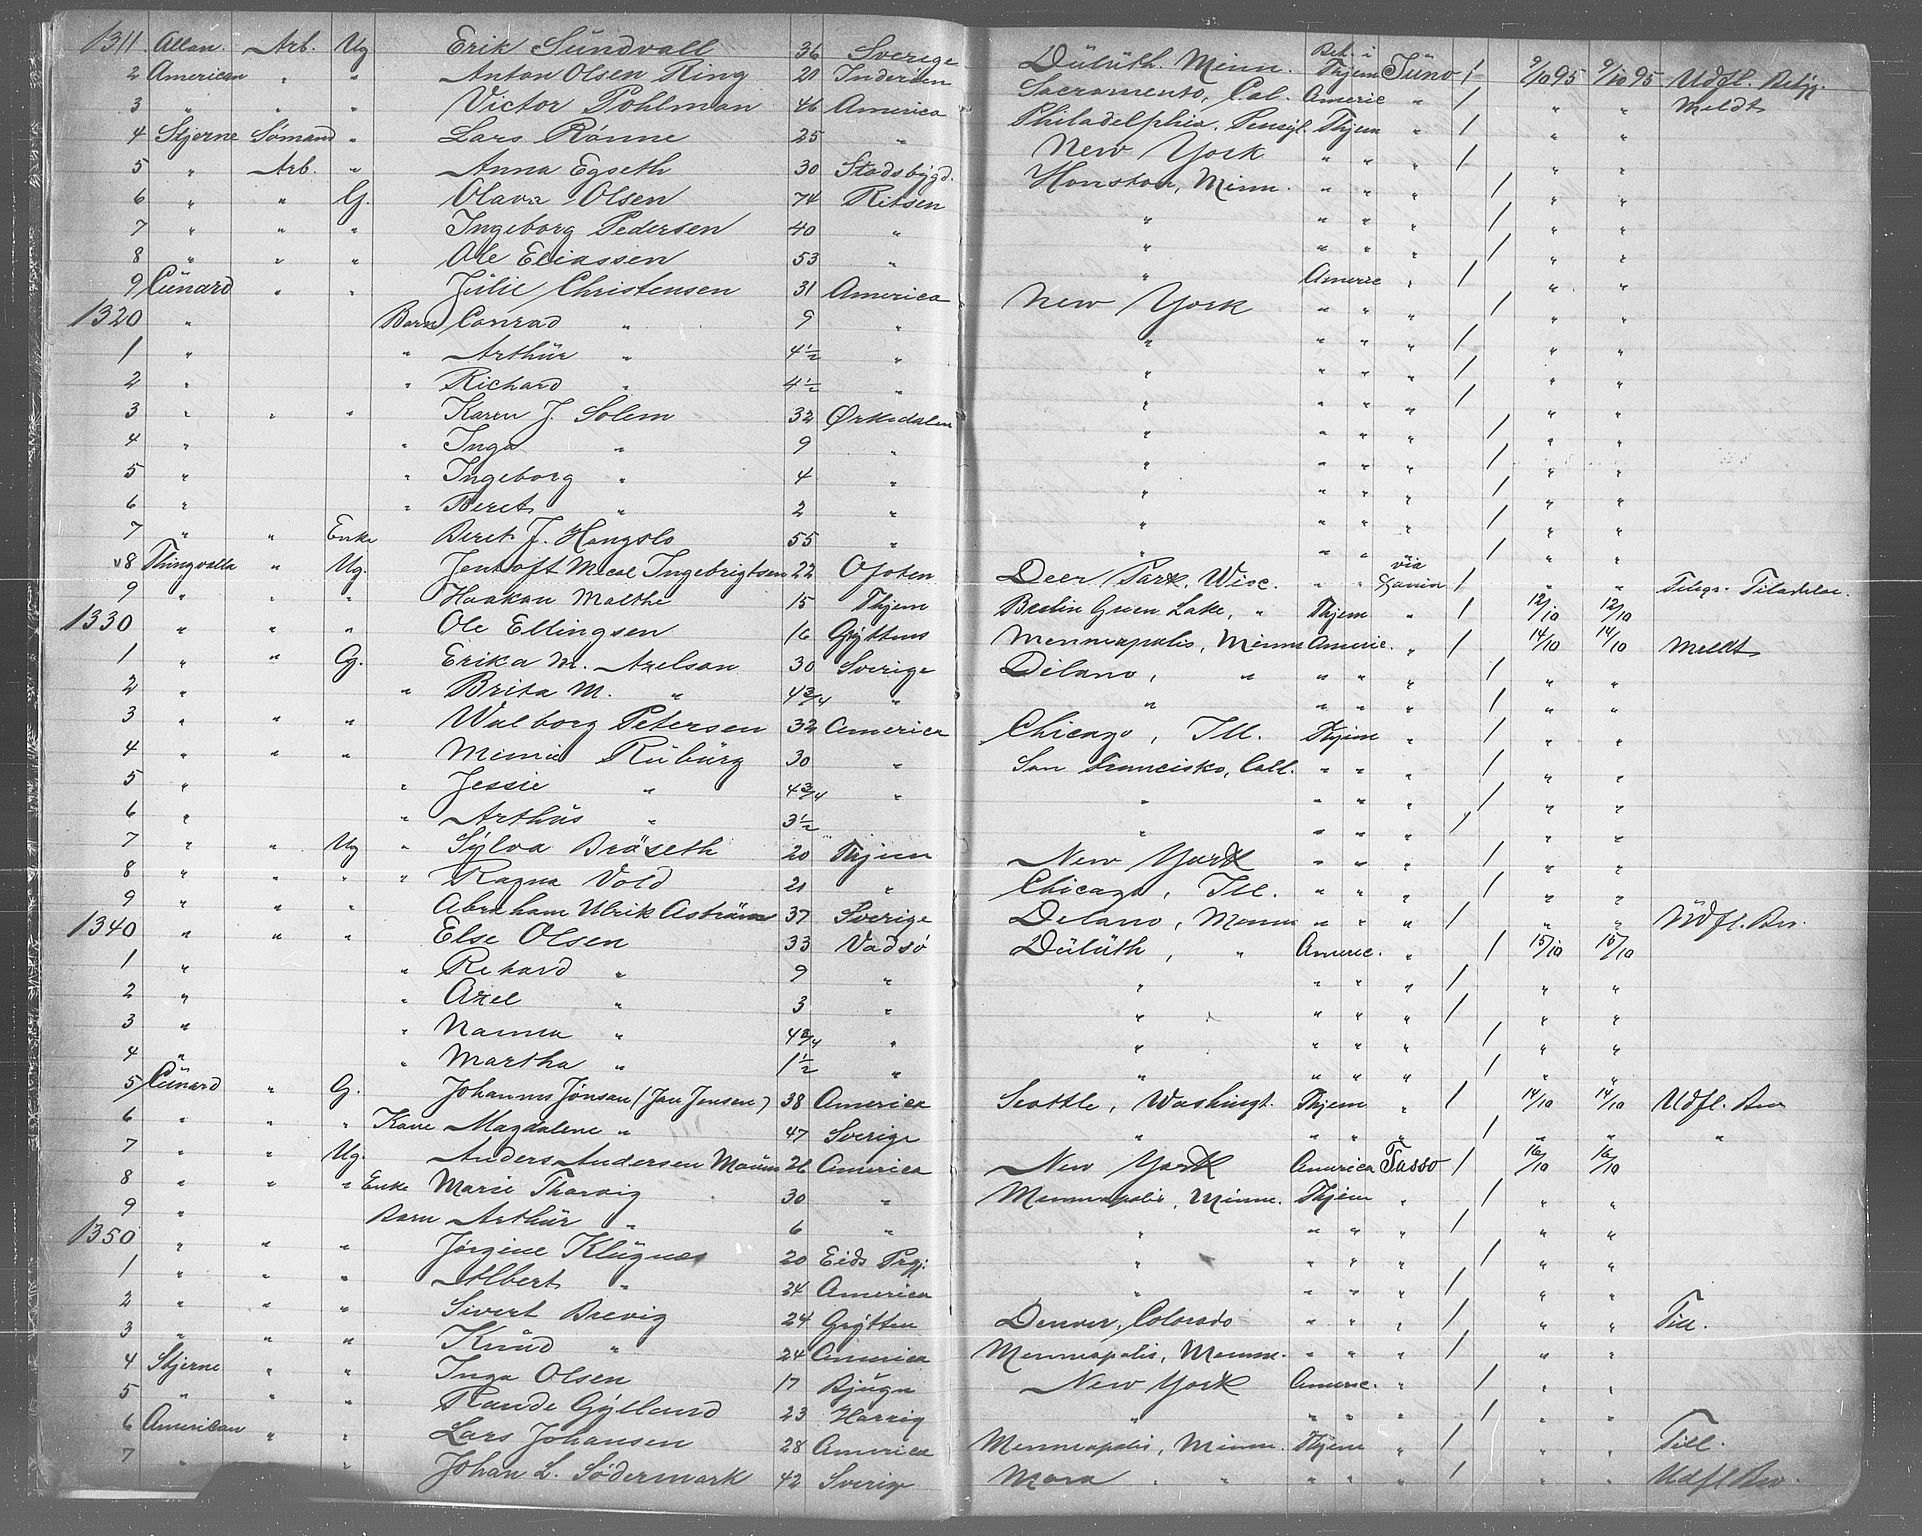 1311 Allan. Arb. Ug Erik Sündvall 36 Sverige Dülüth. Minn. Bet. i Thjem Jüno / 9/10 95 9/10 95 Udfl. Bevg.
2 American " " Anton Olsen Ring 20 Inderöen Sacramento, Cal. Americ " / " " Meldt
3 " " " Victor Pohlman 46 America Philadelphia, Pensyl. Thjem " / " "
4 Stjerne Sömand " Lars Rönne 25 " New York " " " / " "
5 " Arb. " Anna Egseth 30 Stadsbygd. Houston, Minn. " " " / " "
6 " " G. Olava Olsen 74 Ritsen " " " " / " "
7 " " " Ingeborg Pedersen 40 " " " " " / " "
8 " " " Ole Eliassen 53 " " Americ " / " "
9 Cünard " " Jülie Christensen 31 America New York " " " / " "
1320 " Barn Conrad " 9 " " " " " / " "
1 " " Arthür " 4½ " " " " " / " "
2 " " Richard " 4½ " " " " " / " "
3 " " " Karen J. Solem 32 Ørkedalen " " " " / " "
4 " " Inga " 9 " " " " " / " "
5 " " Ingeborg " 4 " " " " " / " "
6 " " Beret " 2 " " " " " / " "
7 " " Enke Beret J. Hongslo 55 " " " " " / " "
8 Thingvalla " Ug. Jentoft Mical Ingebrigtsen 22 Ofoten Deer Park, Wisc. " " via / " " Telegr.
9 " " " Haakon Malthe 15 Thjem Berlin Green Lake, " Thjem " / 12/10 12/10
1330 " " " Ole Ellingsen 16 Gryttens Menneapolis, Minne Americ. " / 14/10 14/10 Meldt
1 " " G. Erika M. Axelson 30 Sverige Dilano, " " " " / " "
2 " " Brita M. " 4¾ " " " " " / " "
3 " " " Walborg Petersen 32 America Chicago, Ill. Thjem " / " "
4 " " " Minnie Rübürg 30 " San Francisko, Call. " " " / " "
5 " " Jessie " 4¾ " " " " " / " "
6 " " Arthür " 3½ " " " " / " "
7 " " Ug " Sylva Bräseth 20 Thjem New York " " " / " "
8 " " " " Ragna Vold 21 " Chicago, Ill. " " " / " "
9 " " " Abraham Ulrik Aström 37 Sverige Delano, Menne " " " / " " Udfl. Bev.
1340 " " " Else Olsen 33 Vadsö Dülüth, " Americ. " / 15/10 15/10
1 " " Rehard " 9 " " " " " / " "
2 " " Axel " 3 " " " " " / " "
3 " " Nanna " 4¾ " " " " " / " "
4 " " Martha " 1½ " " " " " / " "
5 Cünard " G. Johannes Jönson (Jon Jensen) 38 America Seattle, Washingt. Thjem " / 14/10 14/10 Udfl. Bev
6 " " " Kone Magdalene " 47 Sverige " " " " / " " "
7 " " Ug. Anders Andersen Maüm 26 America New York America Tasso / 16/10 16/10
8 " " " Enke Marie Thorvig 30 " Menneapolis, Minne. Thjem " / " "
9 " Barn Arthür " 6 " " " " " / " "
1350 " " " Jörgine Klügnes 20 Eids Prgj. " " " " / " "
1 " " " Albert " 24 America " " " " / " "
2 " " " Sivert Brevig 24 Grÿtten Denver, Colorado " " " / " " Till.
3 " " " Knüd " 24 America Menneapolis, Menne. " " " / " "
4 Stjerne " " Inga Olsen 17 Bjügn New York Americ. " / " "
5 " " " Rande Gÿlland 23 " " " " / " "
6 American " " Lars Johansen 28 America Menneapolis, Minne. Thjem " / " " Till.
7 " " Johan L. Södermark 42 Sverige Mora " " " " " / " " Udfl Bev.